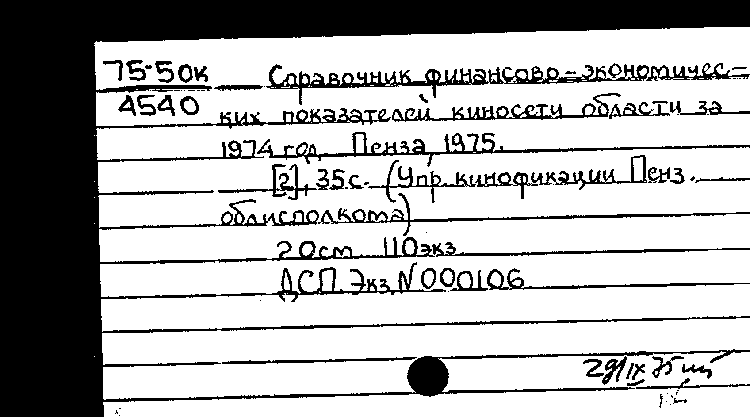 75-50к
4540
Справочник финансово-экономичес-
ких показателей киносети области за
1974 год. Пенза, 1975.
[2], 35 с. (Упр. кинофикации Пенз.
облисполкома)
20 см 110 экз.
ДСП. Экз. N 000106
29/IX 75